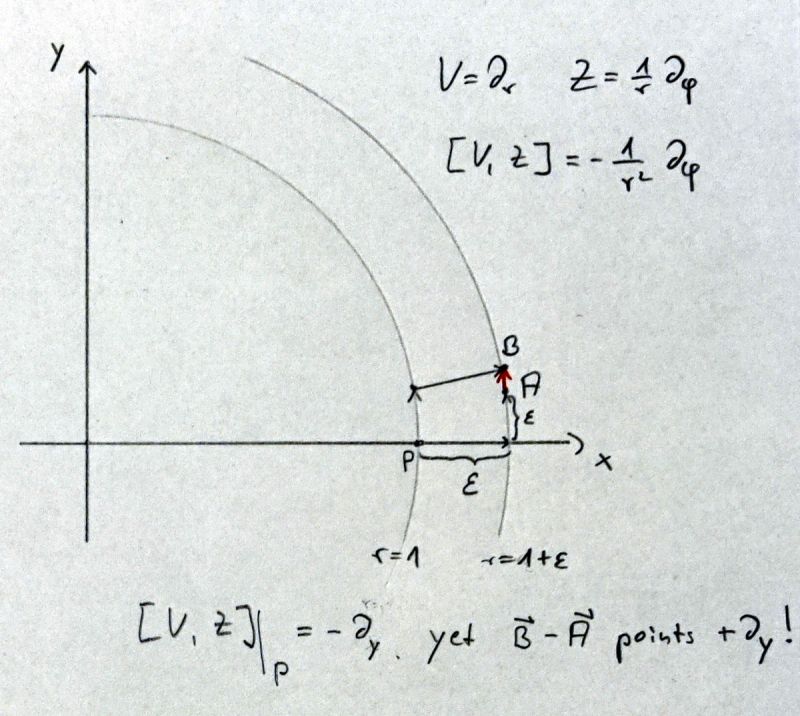 y
V=∂r Z = 1/r ∂φ
[V, Z] = - 1/r² ∂φ
B
A
ε
P
x
ε
r=1 r=1+ε
[V, Z]|P = - ∂y. yet B⃗ - A⃗ points +∂y!